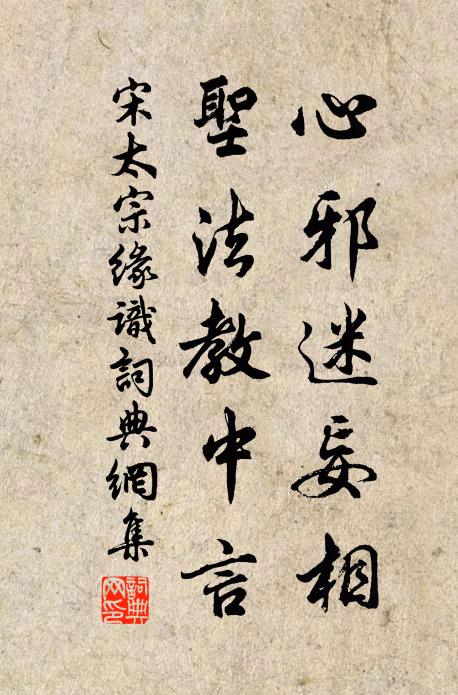 心邪迷妄相
聖法教中言
宋太宗緣識詞典網集
詞典網印